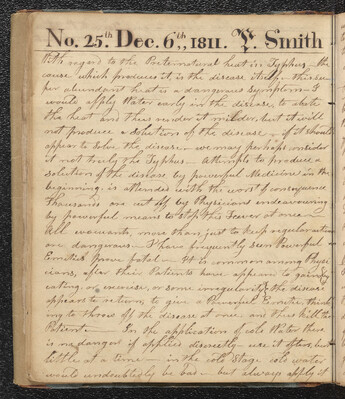 No. 25.th Dec. 6th, 1811. Y. Smith
With regard to the Preternatural heat in Typhus – the
cause which produces it, is the disease itself – this su-
per abundant heat is a dangerous symptom – I
would apply Water early in the disease, to abate
the heat and thus render it milder, but it will
not produce a solution of the disease – if it should
appear to solve the disease, we may perhaps consider
it not truly the Typhus – Attempts to produce a
solution of the disease by powerful Medicines in the
beginning, is attended with the worst of consequence
Thousands are cut off by Physicians endeavouring
by powerful means to stop this Fever at once –
All evacuants, more than just to keep regular motion
are dangerous – I have frequently seen Powerful
Emetick prove fatal – It is common among Physi-
cians, after their Patients have appear'd to gain, by
eating, or exercise, or some irregularity the disease
appears to return, to give a Powerful Emetic, think-
ing to throw off the disease at once and thus kill the
Patient – In the application of cold Water there
is no danger if applied discreetly – use it often, but
little at a time – in the cold Stage cold water
would undoubtedly be bad – but always apply it